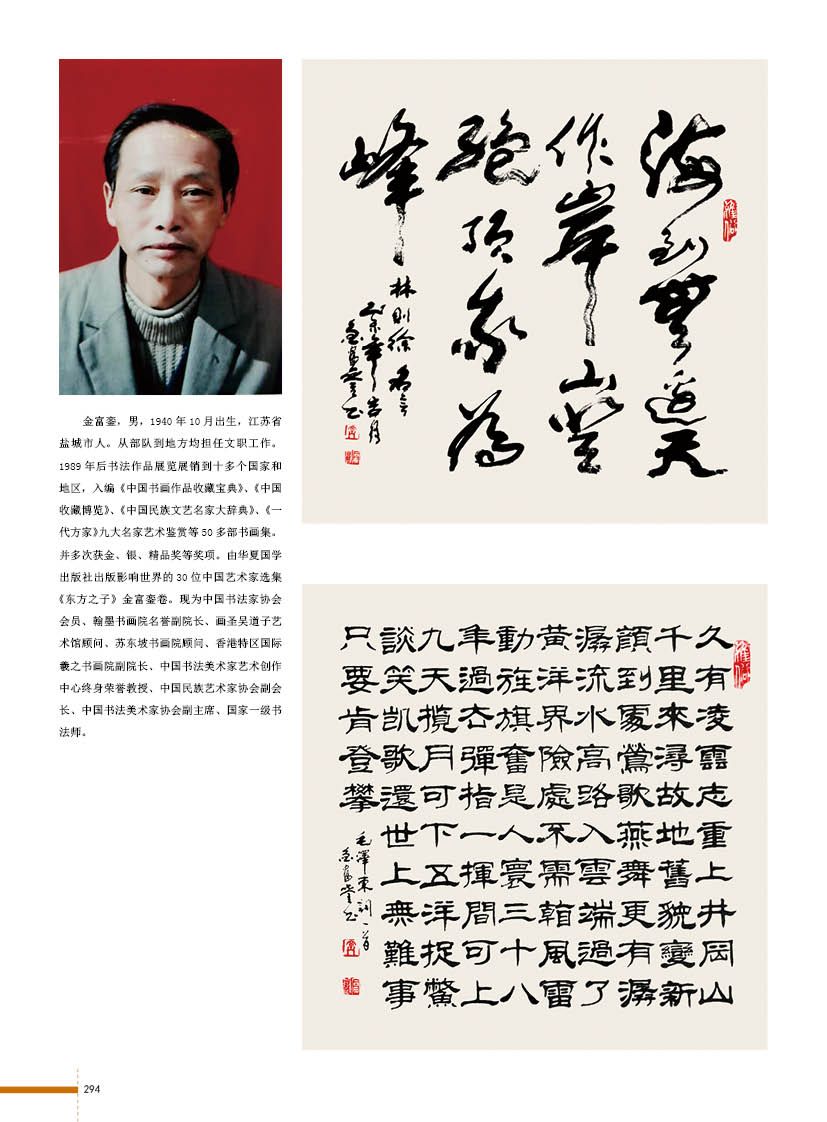 金富銮，男，1940 年 10 月出生，江苏省
盐城市人。从部队到地方均担任文职工作。
1989 年后书法作品展览展销到十多个国家和
地区，入编《中国书画作品收藏宝典》、《中国
收藏博览》、《中国民族文艺名家大辞典》、《一
代方家》九大名家艺术鉴赏等 50 多部书画集。
并多次获金、银、精品奖等奖项。由华夏国学
出版社出版影响世界的 30 位中国艺术家选集
《东方之子》金富銮卷。现为中国书法家协会
会员、翰墨书画院名誉副院长、画圣吴道子艺
术馆顾问、苏东坡书画院顾问、香港特区国际
羲之书画院副院长、中国书法美术家艺术创作
中心终身荣誉教授、中国民族艺术家协会副会
长、中国书法美术家协会副主席、国家一级书
法师。
海到無邊天
作岸山登
絕頂我為
峰
林則徐名言
乙未年吉月
金富銮书
久有凌雲志重上井岡山
千里來潯故地舊貌變新
顏到處鶯歌燕舞更有潺
潺流水高路入雲端過了
黃洋界險處不需看風雷
動旌旗奮是人寰三十八
年過去彈指一揮間可上
九天攬月可下五洋捉鱉
談笑凱歌還世上無難事
只要肯登攀
毛澤東詞一首
金富銮书
294